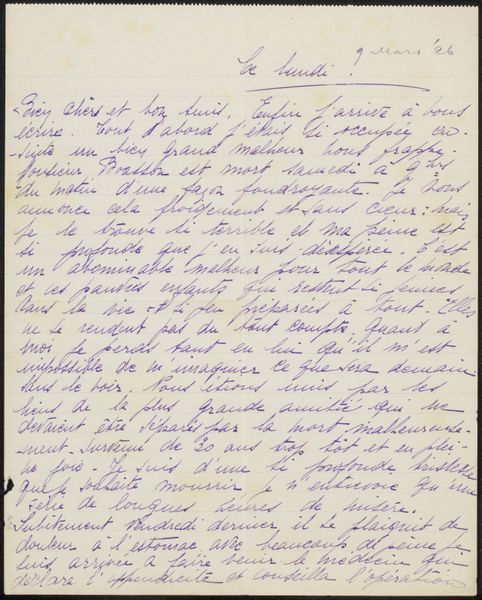 9 Mars '26
Ce lundi.
Bien chers et bon amis, Enfin j'arrive à vous
écrire. Tout d'abord j'étais si occupée en-
suite un bien grand malheur nous frappe.
Monsieur est mort samedi à 9 hrs
du matin d'une façon foudroyante. Je vous
annonce cela froidement et sans cœur: mais
je le trouve si terrible et ma peine est
si profonde que j'en suis désespérée. C'est
un abominable malheur pour tout le monde
et ces pauvres enfants qui restent si jeunes
dans la vie et si peu préparées à tout. Elles
ne se rendent pas du tout compte, quant à
moi je perds tant en lui qu'il m'est
impossible de m'imaginer ce que sera demain
sans le voir. Nous étions unis par les
liens de la plus grande amitié qui ne
devaient être séparés par la mort malheureuse-
ment survenue de 20 ans trop tôt et en plei-
ne joie. Je suis d'une si profonde tristesse
que je souhaite mourrir je n'entrevois qu'une
série de longues heures de misère.
Subitement Vendredi dernier, il se plaignit de
douleur à l'estomac avec beaucoup de peine je
suis arrivée à faire venir le médecin qui
déclara l'appendicite et conseilla l'opération